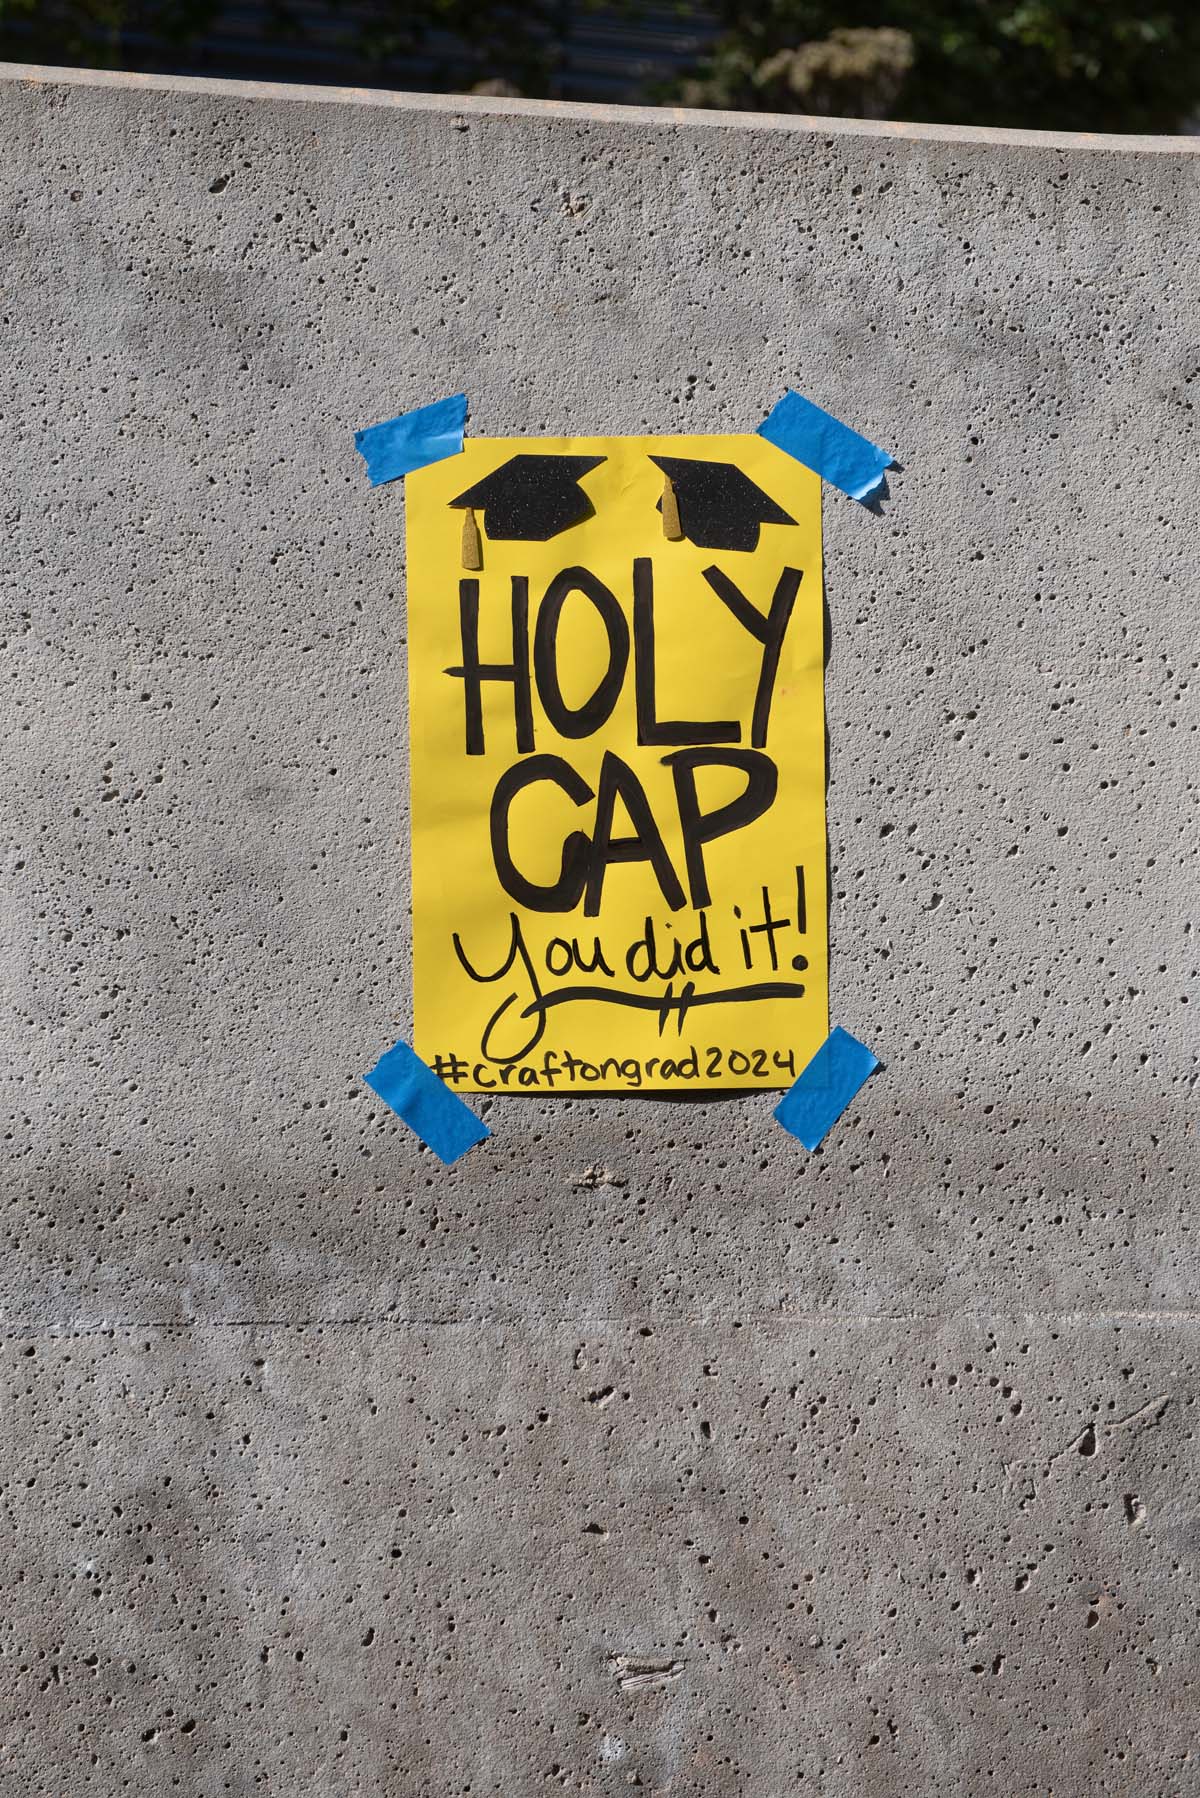 HOLY
CAP
You did it!
#craftongrad2024